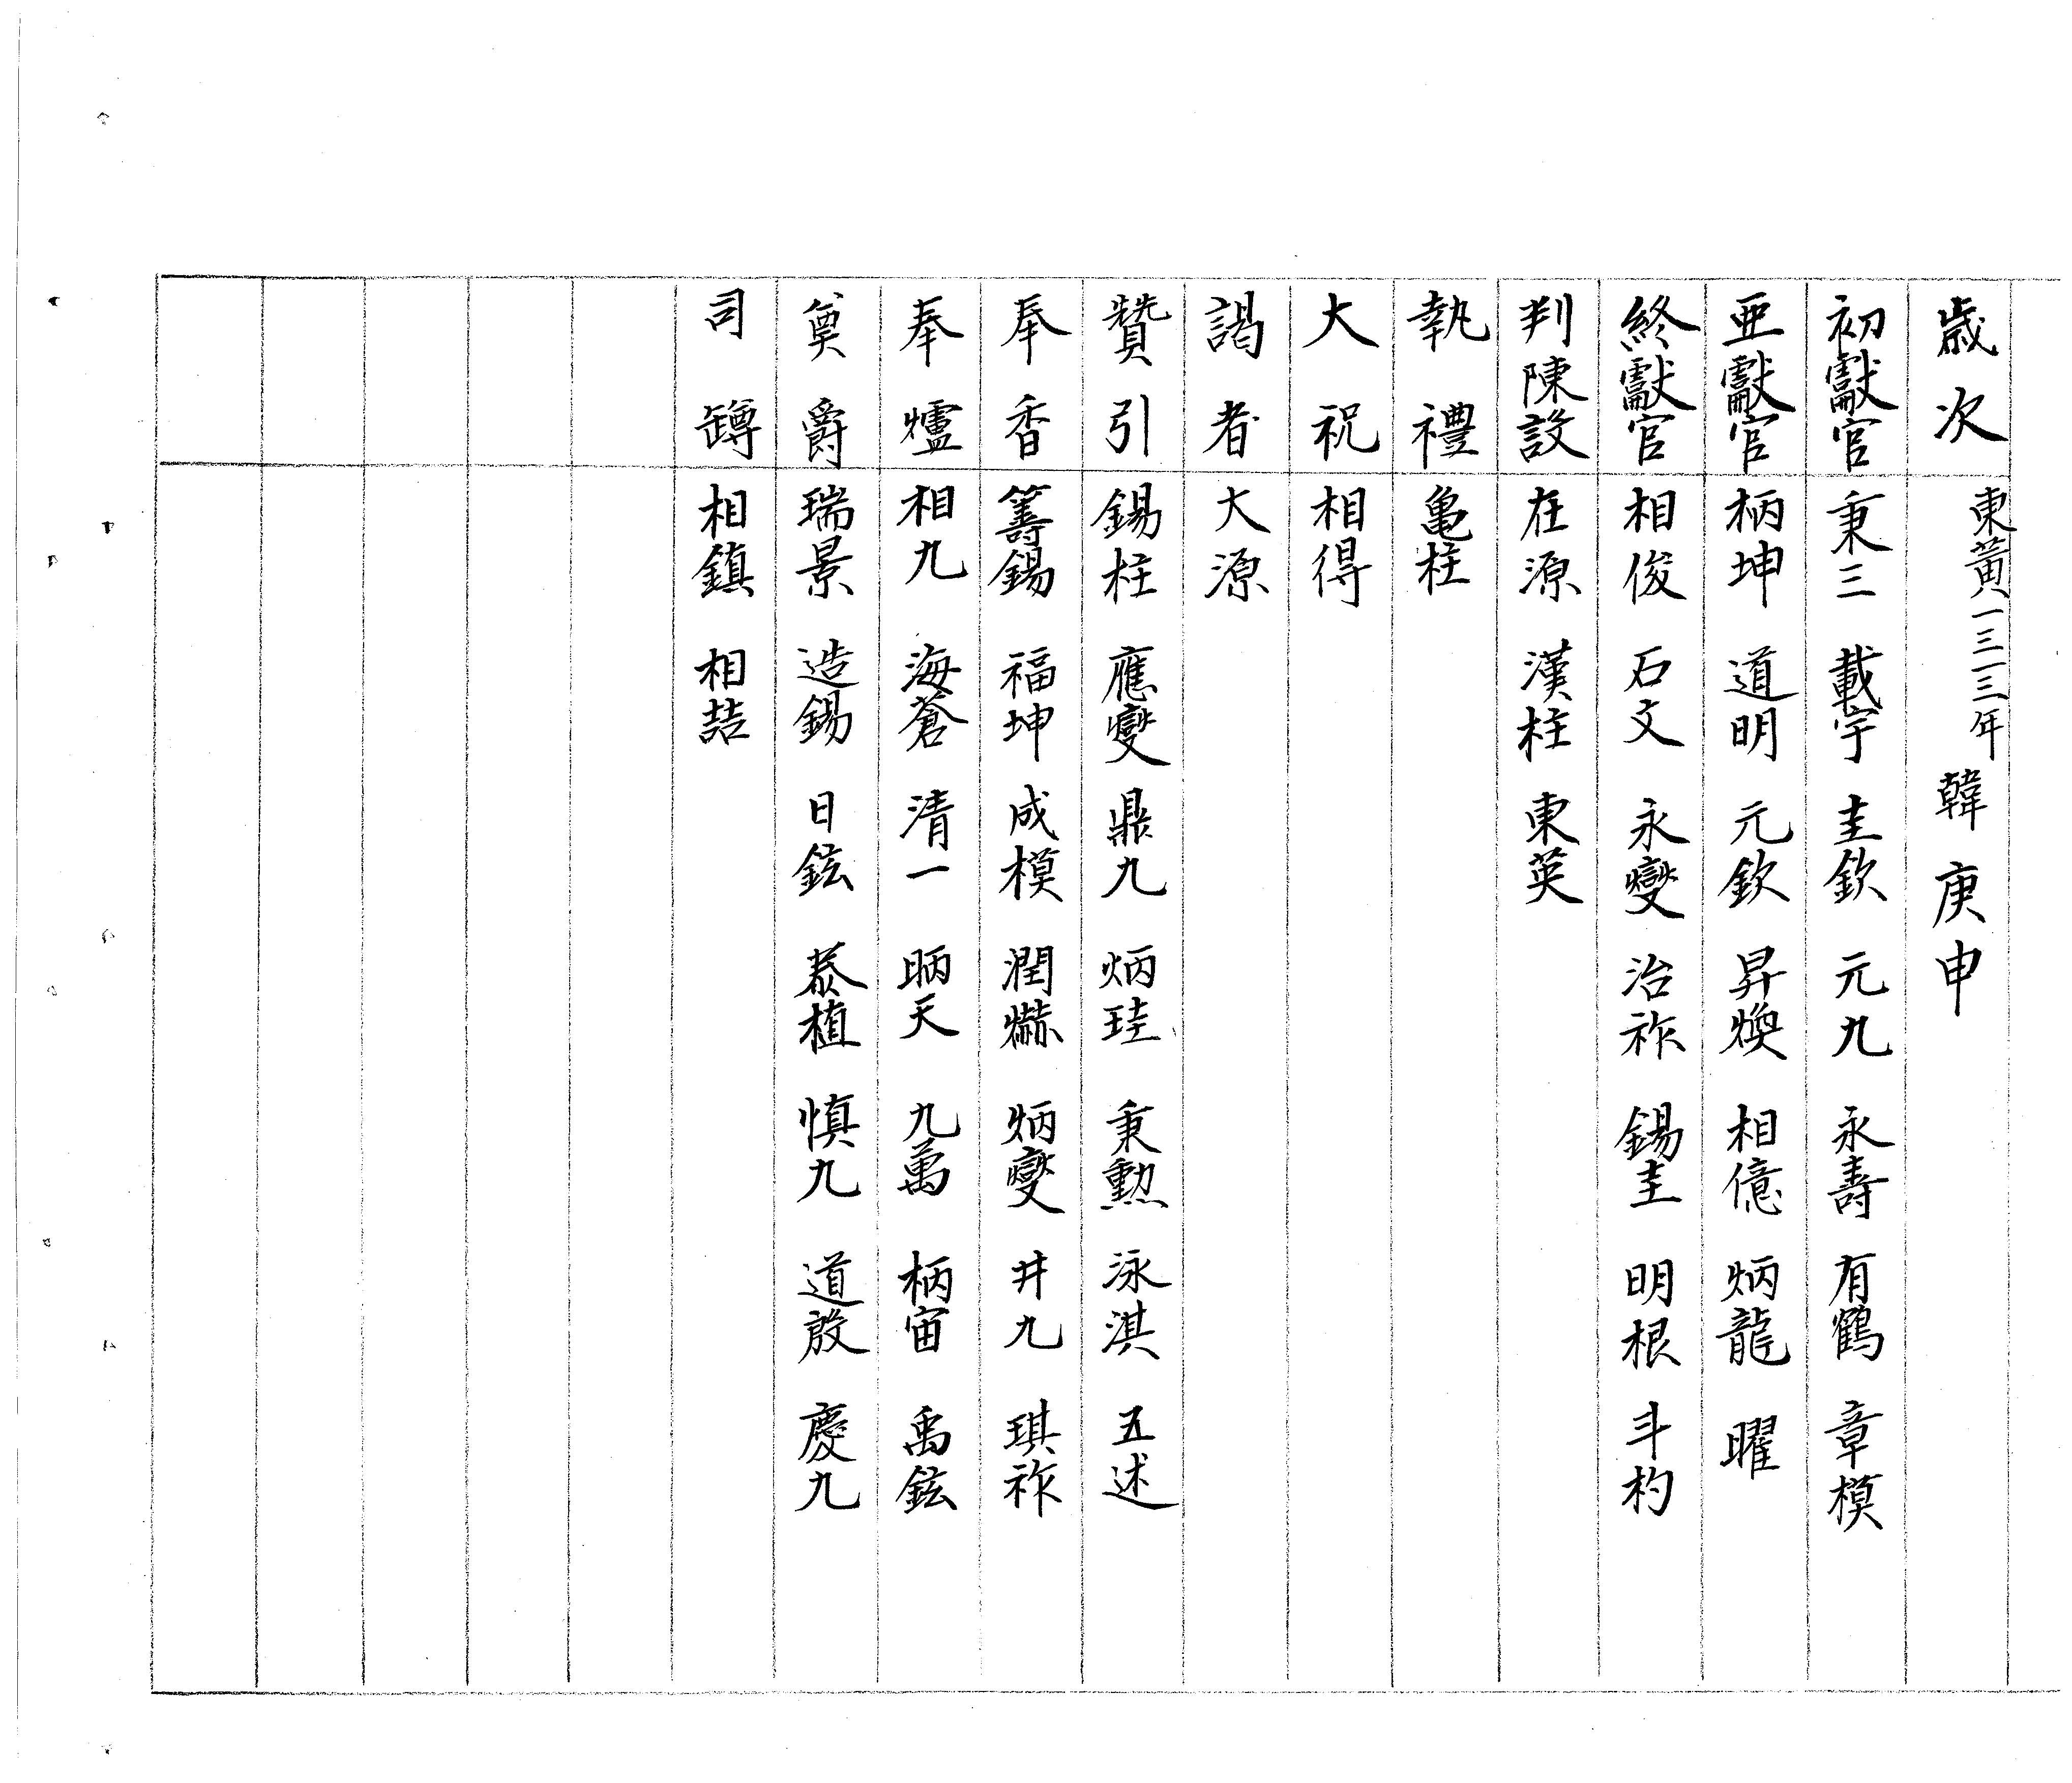 歲次 東黃一三一三年 韓庚申
初獻官 秉三 載宇 圭欽 元九 永壽 有鶴 章模
亜獻官 柄坤 道明 元欽 昇煥 相億 炳龍 曜
終獻官 相俊 石文 永燮 治祚 錫圭 明根 斗杓
判陳設 在源 漢柱 東英
執禮 亀柱
大祝 相得
謁者 大源
贊引 錫柱 應燮 鼎九 炳珪 秉勳 泳淇 五述
奉香 籌錫 福坤 成模 潤爀 炳燮 井九 琪祚
奉爐 相九 海蒼 清一 昞天 九萬 柄宙 禹鉉
奠爵 瑞景 造錫 日鉉 泰植 慎九 道殷 慶九
司罇 相鎮 相喆